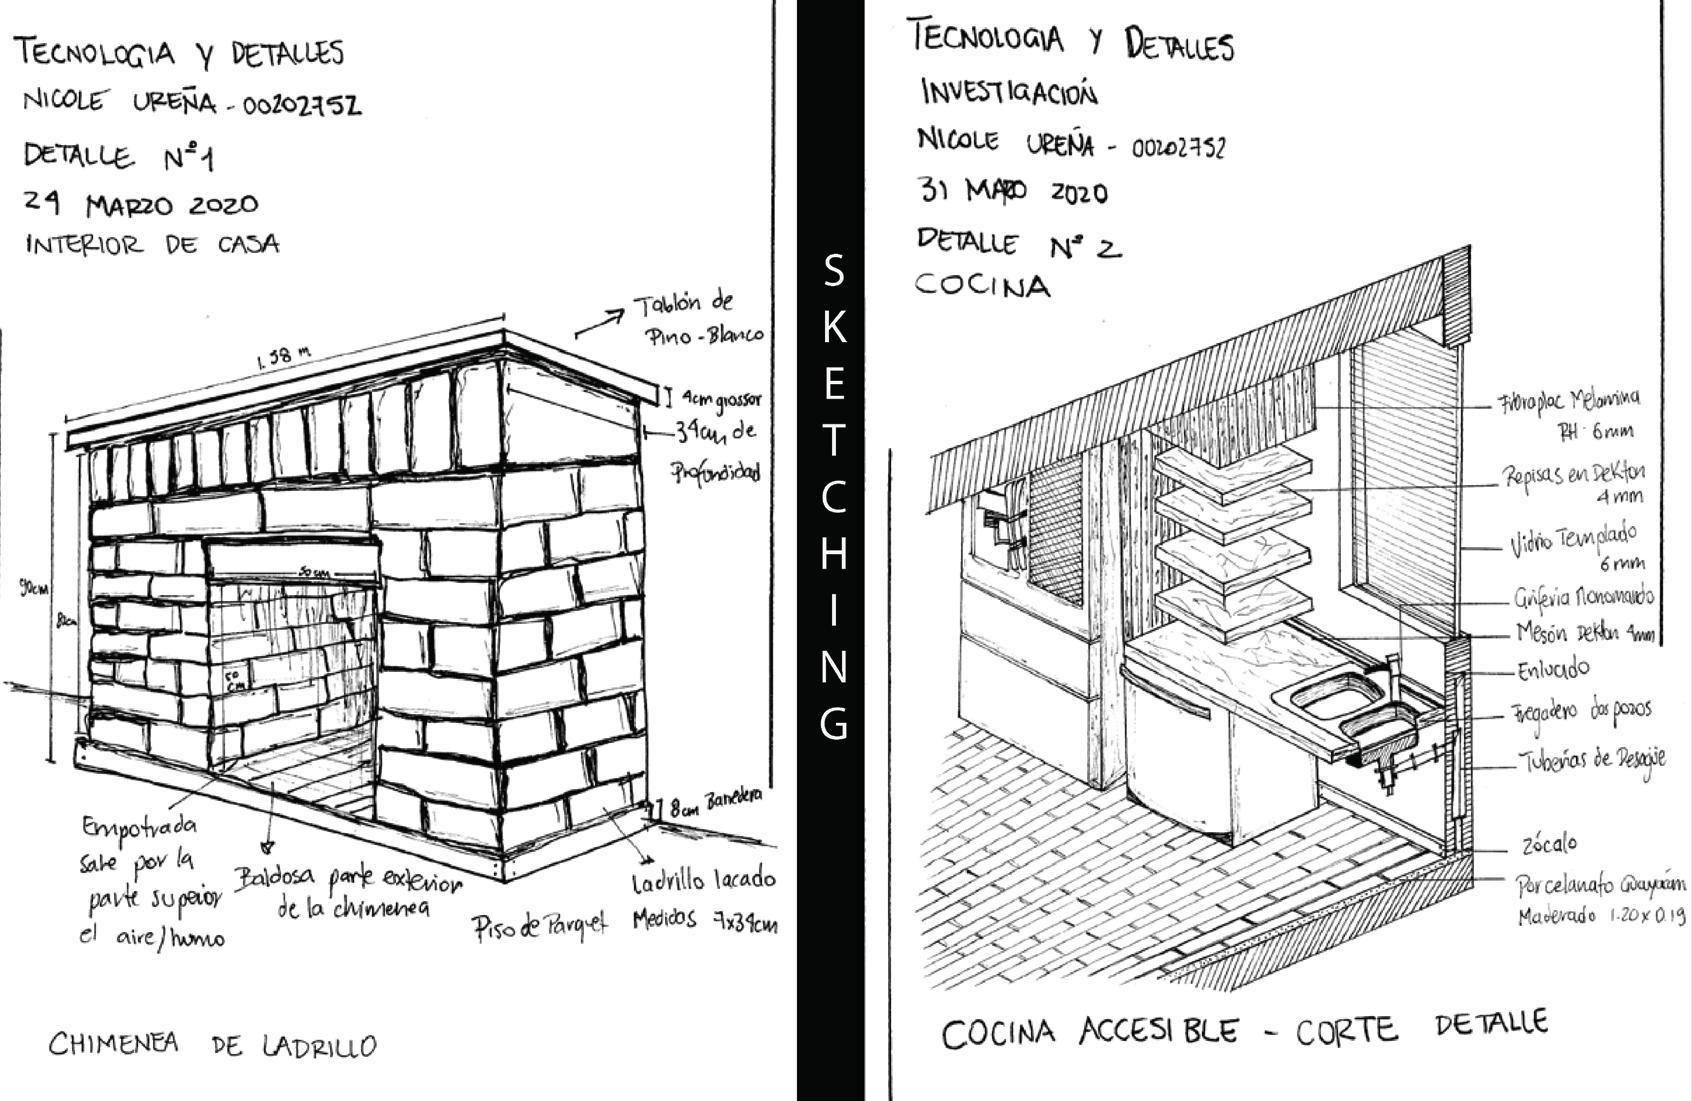 TECNOLOGIA Y DETALLES
NICOLE UREÑA - 00202752
DETALLE Nº1
24 MARZO 2020
INTERIOR DE CASA
Tablón de
Pino - Blanco
1.58 m
4cm grosor
34cm de
Profundidad
90cm
82cm
50cm
50
cm
8cm Barredera
Empotrada
sale por la
parte superior
el aire/humo
Baldosa parte exterior
de la chimenea
Piso de Parquet
Ladrillo lacado
Medidas 7x34cm
CHIMENEA DE LADRILLO
SKETCHING
TECNOLOGIA Y DETALLES
INVESTIGACIÓN
NICOLE UREÑA - 00202752
31 MARZO 2020
DETALLE Nº 2
COCINA
Fibraplac Melamina
RH - 6mm
Repisas en Dekton
4mm
Vidrio Templado
6mm
Grifería Monomando
Mesón Dekton 4mm
Enlucido
Fregadero dos pozos
Tuberías de Desagüe
Zócalo
Porcelanato
Maderado 1.20 x 0.19
COCINA ACCESIBLE - CORTE DETALLE